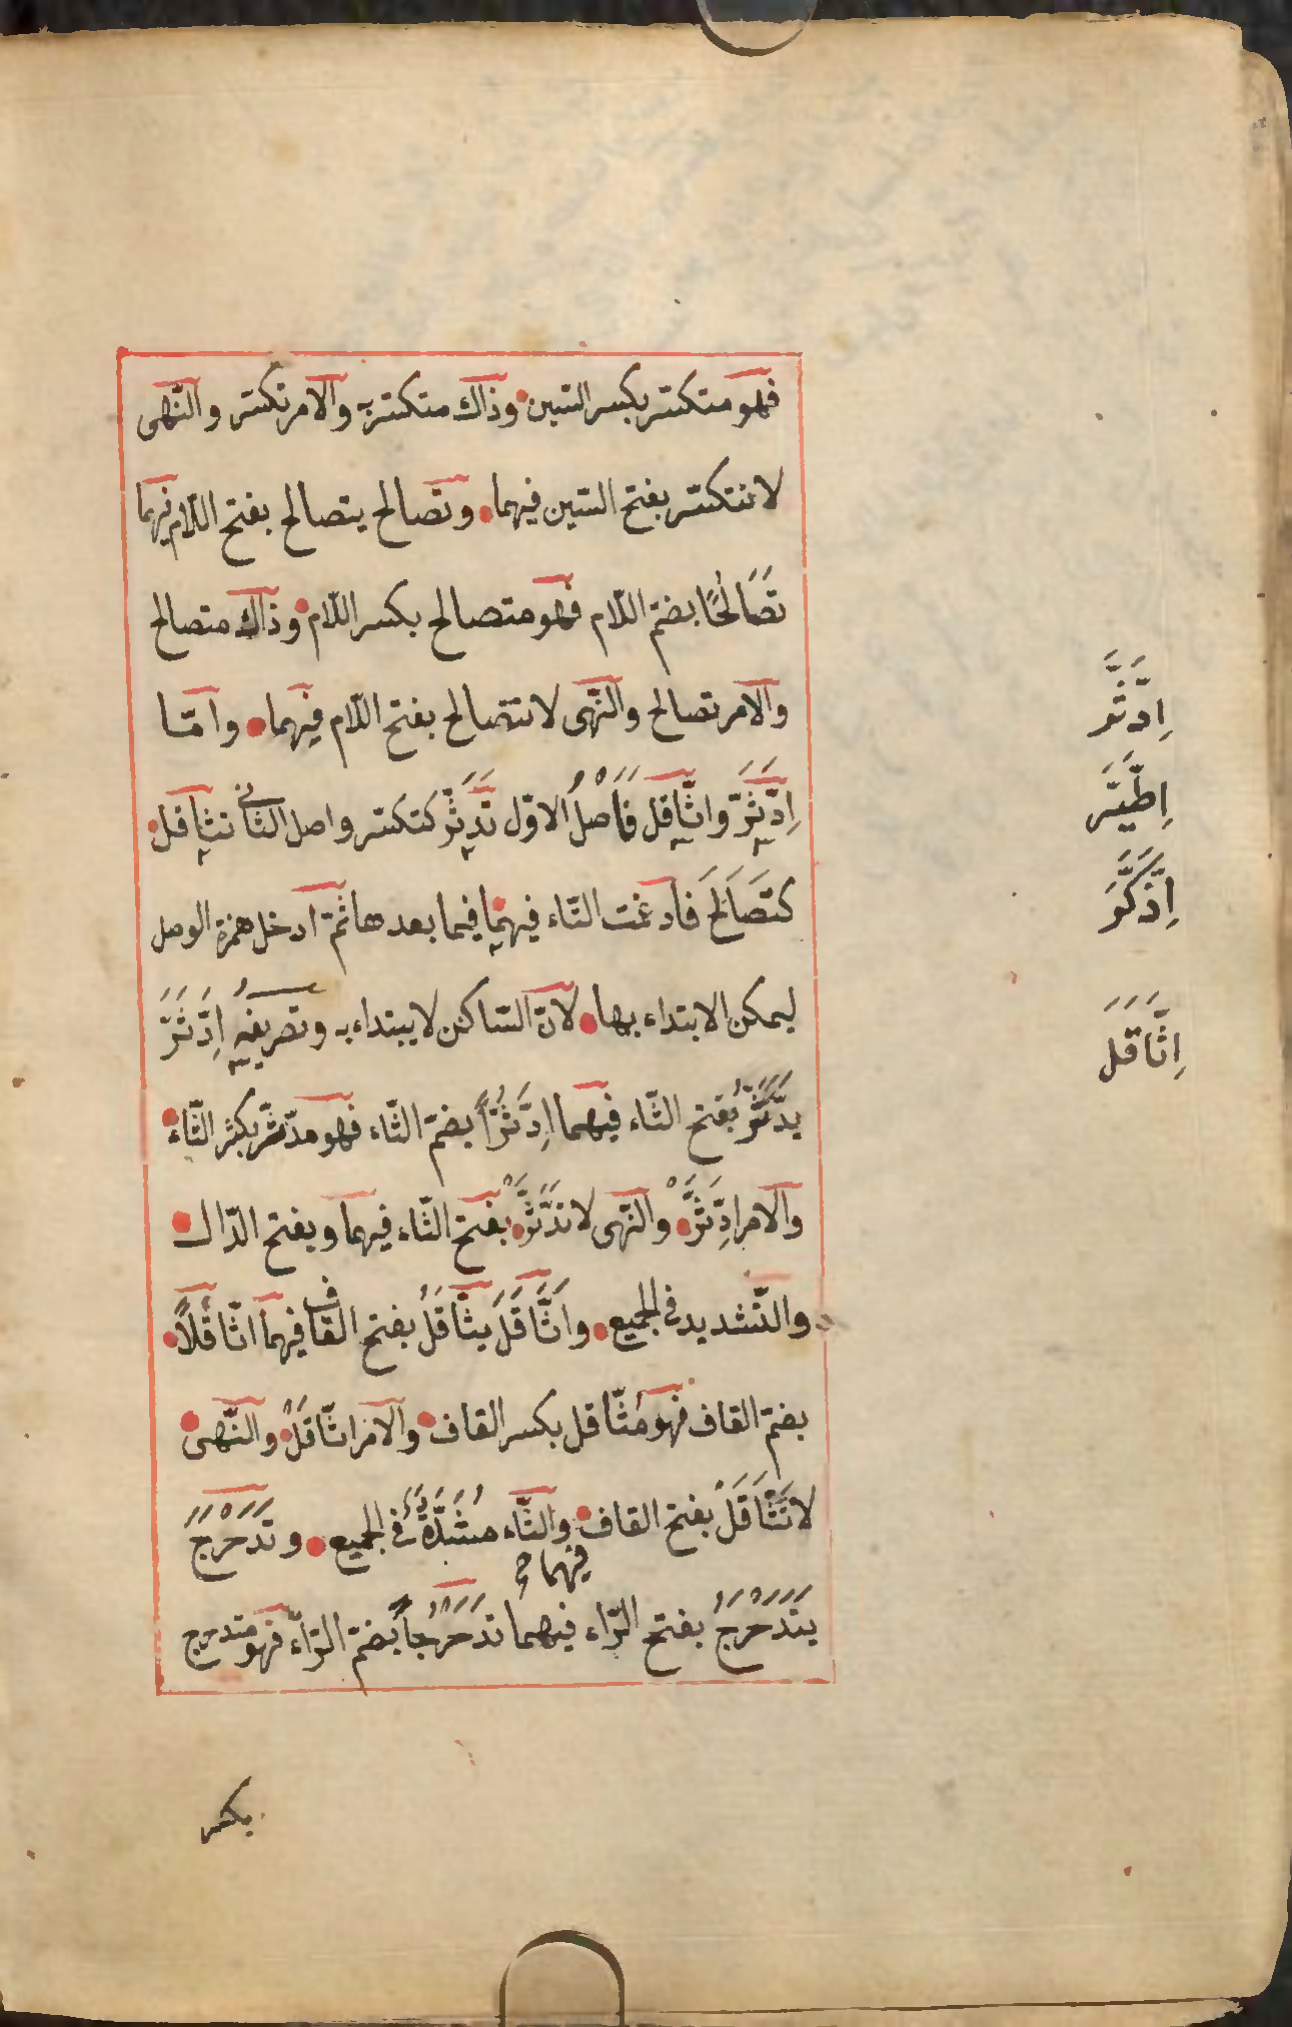 فهو متكسّر بكسر السّين وذاك متكسّر به والامر تكسّر والنّهى
لا تتكسّر بفتح السّين فيهما وتصالح يتصالح بفتح اللّام فيهما
تَصَالُحًا بضمّ اللّام فهو متصالح بكسر اللّام وذاك متصالح
والامر تصالح والنّهى لا تتصالح بفتح اللّام فيهما وامّا
اِدَّثَّرَ واثّاقل فَاَصْلُ الاوّل تَدَثَّرَ كتكسّر واصل الثّانى تثاقل
كتَصَالَحَ فادغمت التّاء فيهما فيما بعدها ثمّ ادخل همزة الوصل
ليمكن الابتداء بها لانّ السّاكن لا يبتداء به وتصريفه اِدَّثَّرَ
يَدَّثَّرُ بفتح الثّاء فيهما اِدَّثُّرًا بضمّ الثّاء فهو مدّثّر بكسر الثّاء
والامر اِدَّثَّرْ والنّهى لا تَدَّثَّرْ بفتح الثّاء فيهما وبفتح الدّال
والتّشديد فى الجميع واثَّاقَلَ يثّاقَلُ بفتح القاف فيهما اثّاقُلاً
بضمّ القاف فهو مُثّاقل بكسر القاف والامر اثّاقَلْ والنّهى
لا تَثَّاقَلْ بفتح القاف فيهما والثّاء مُشَدَّدَةٌ فى الجميع وتَدَحْرَجَ
يَتَدَحْرَجُ بفتح الرّاء فيهما تَدَحْرُجاً بضمّ الرّاء فهو متدحرج
بكسر
اِدَّثَّرَ
اِطَّيَّرَ
اِذَّكَّرَ
اِثَّاقَلَ